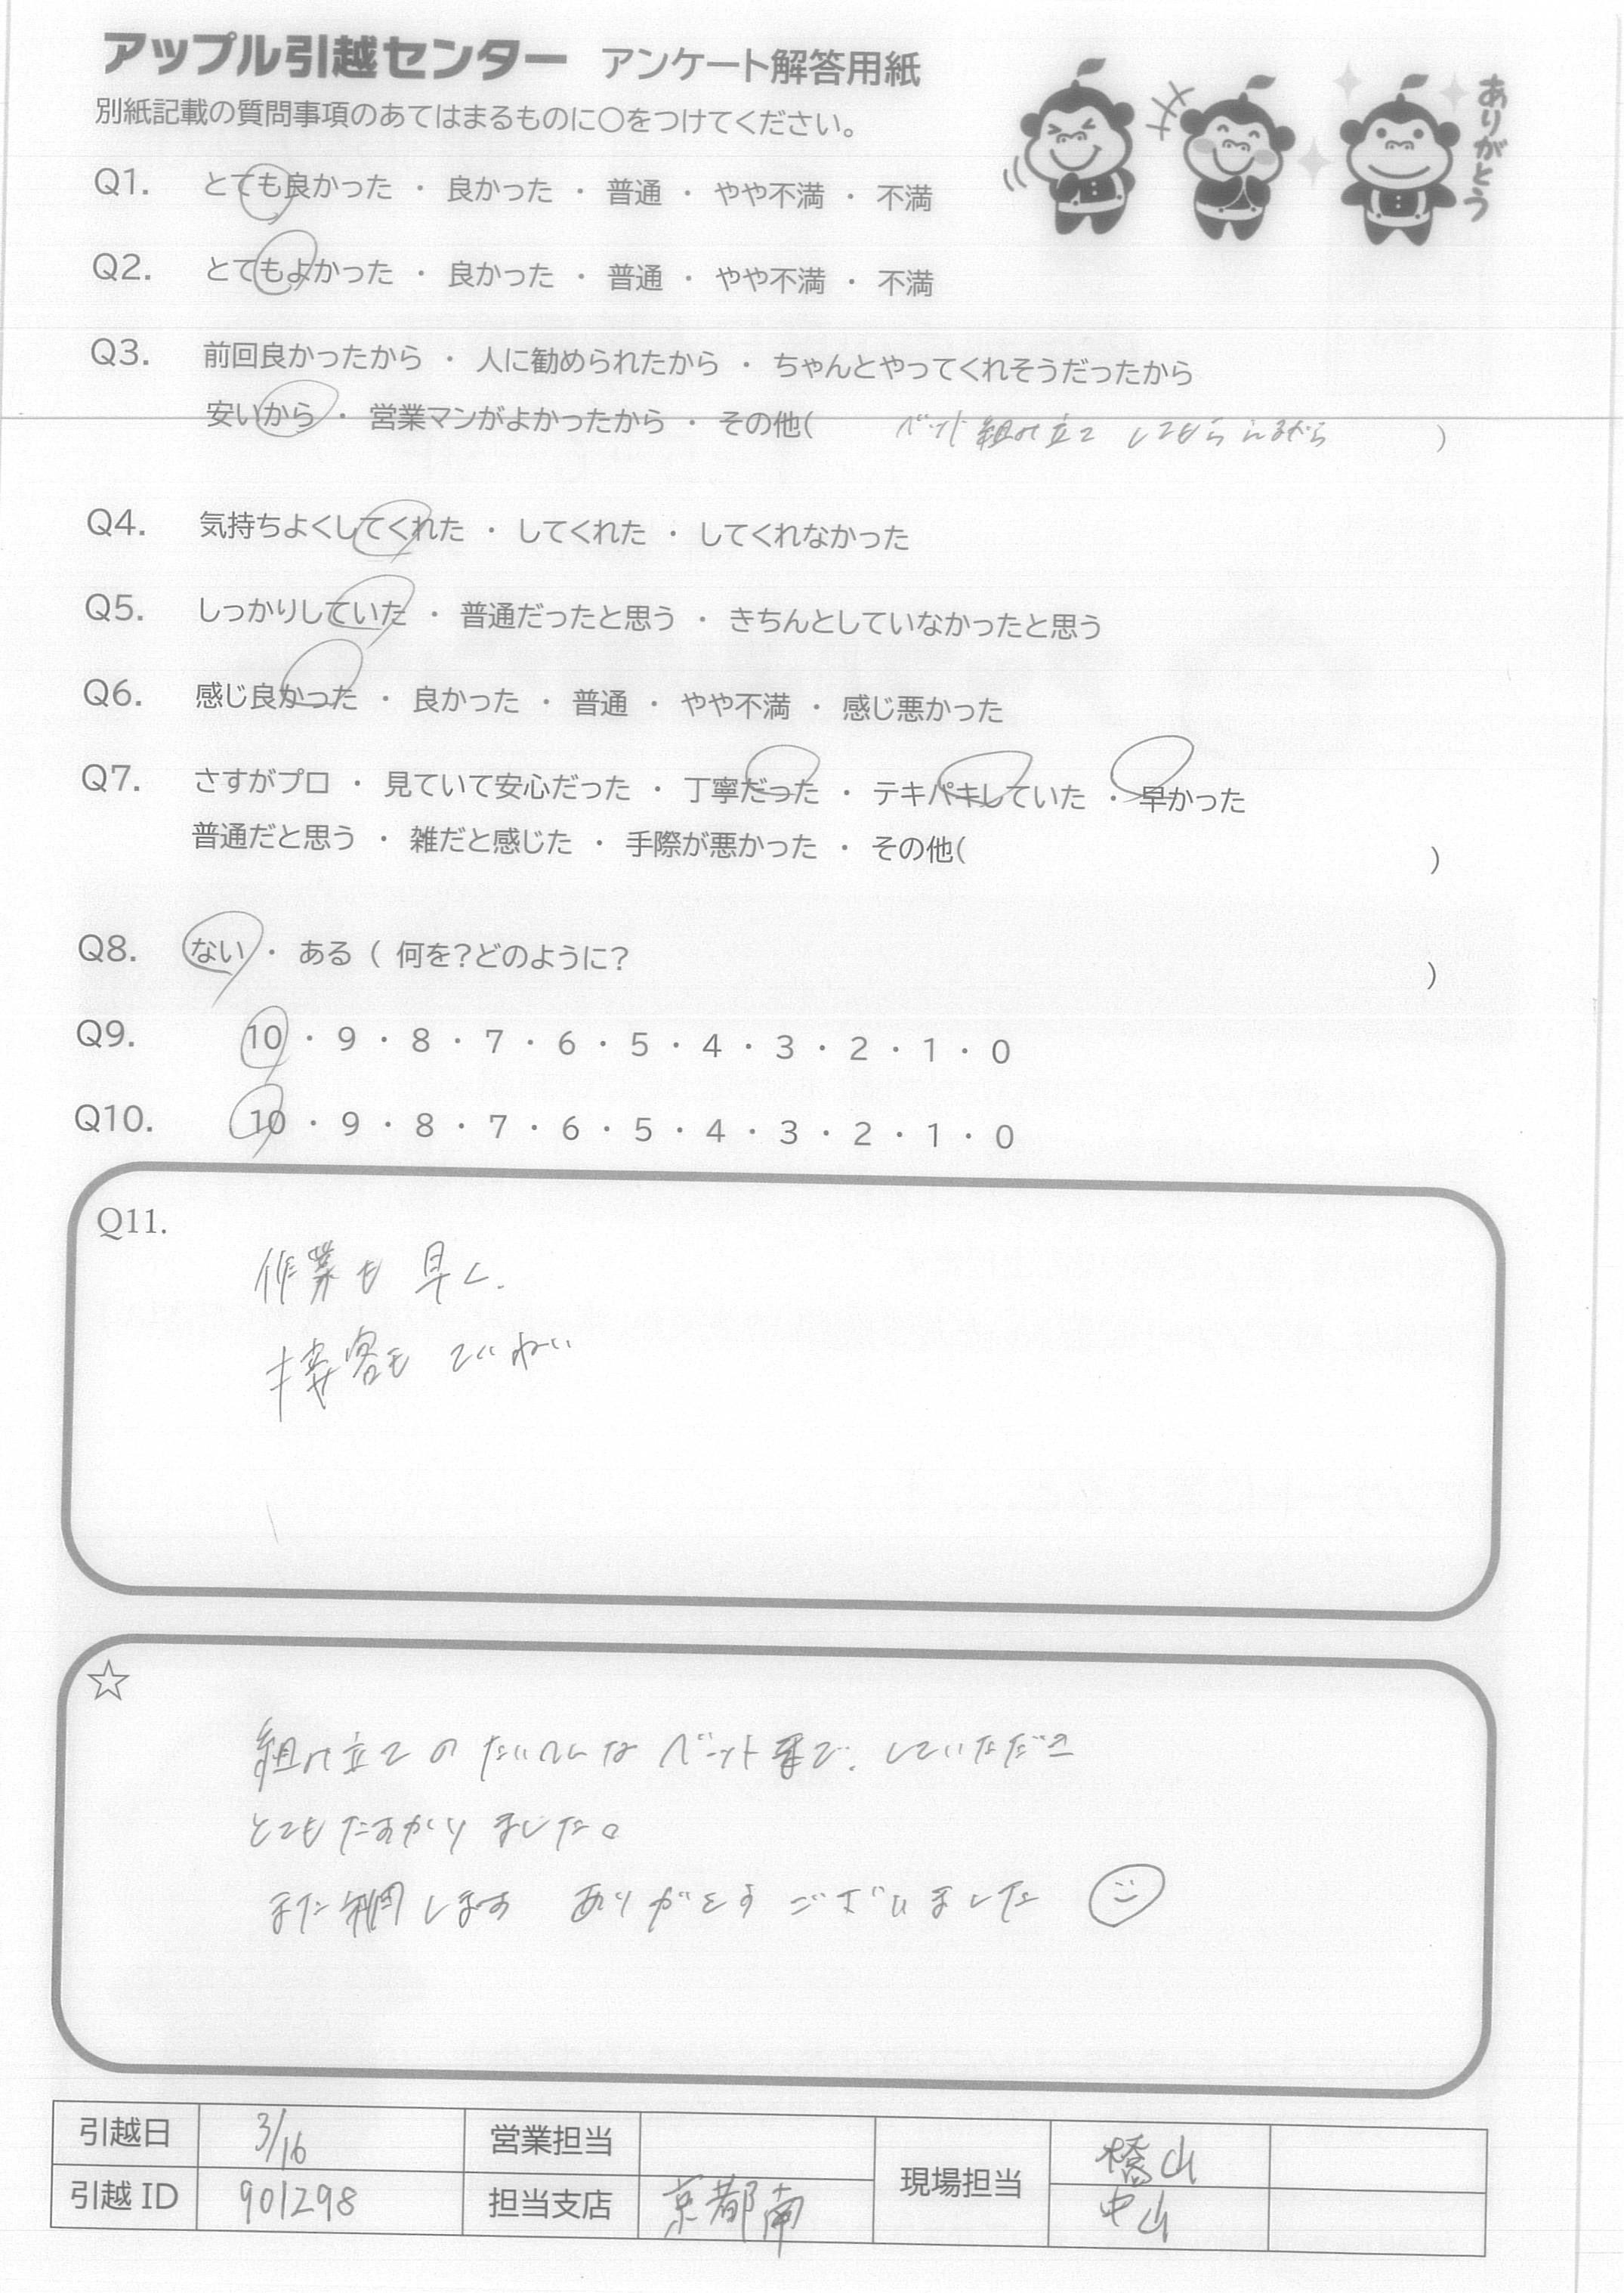 アップル引越センター アンケート解答用紙
別紙記載の質問事項のあてはまるものに〇をつけてください。
ありがとう
Q1. とても良かった ・ 良かった ・ 普通 ・ やや不満 ・ 不満
Q2. とてもよかった ・ 良かった ・ 普通 ・ やや不満 ・ 不満
Q3. 前回良かったから ・ 人に勧められたから ・ ちゃんとやってくれそうだったから
安いから ・ 営業マンがよかったから ・ その他( ベット組み立てしてもらえるから )
Q4. 気持ちよくしてくれた ・ してくれた ・ してくれなかった
Q5. しっかりしていた ・ 普通だったと思う ・ きちんとしていなかったと思う
Q6. 感じ良かった ・ 良かった ・ 普通 ・ やや不満 ・ 感じ悪かった
Q7. さすがプロ ・ 見ていて安心だった ・ 丁寧だった ・ テキパキしていた ・ 早かった
普通だと思う ・ 雑だと感じた ・ 手際が悪かった ・ その他( )
Q8. ない ・ ある ( 何を?どのように? )
Q9. 10 ・ 9 ・ 8 ・ 7 ・ 6 ・ 5 ・ 4 ・ 3 ・ 2 ・ 1 ・ 0
Q10. 10 ・ 9 ・ 8 ・ 7 ・ 6 ・ 5 ・ 4 ・ 3 ・ 2 ・ 1 ・ 0
Q11.
作業も早く、
接客もていねい
☆
組み立てのたいへんなベット まで、していただき
とてもたすかりました。
また利用します ありがとうございました
引越日 3/16 営業担当 現場担当 橋山
引越ID 901298 担当支店 京都南 中山